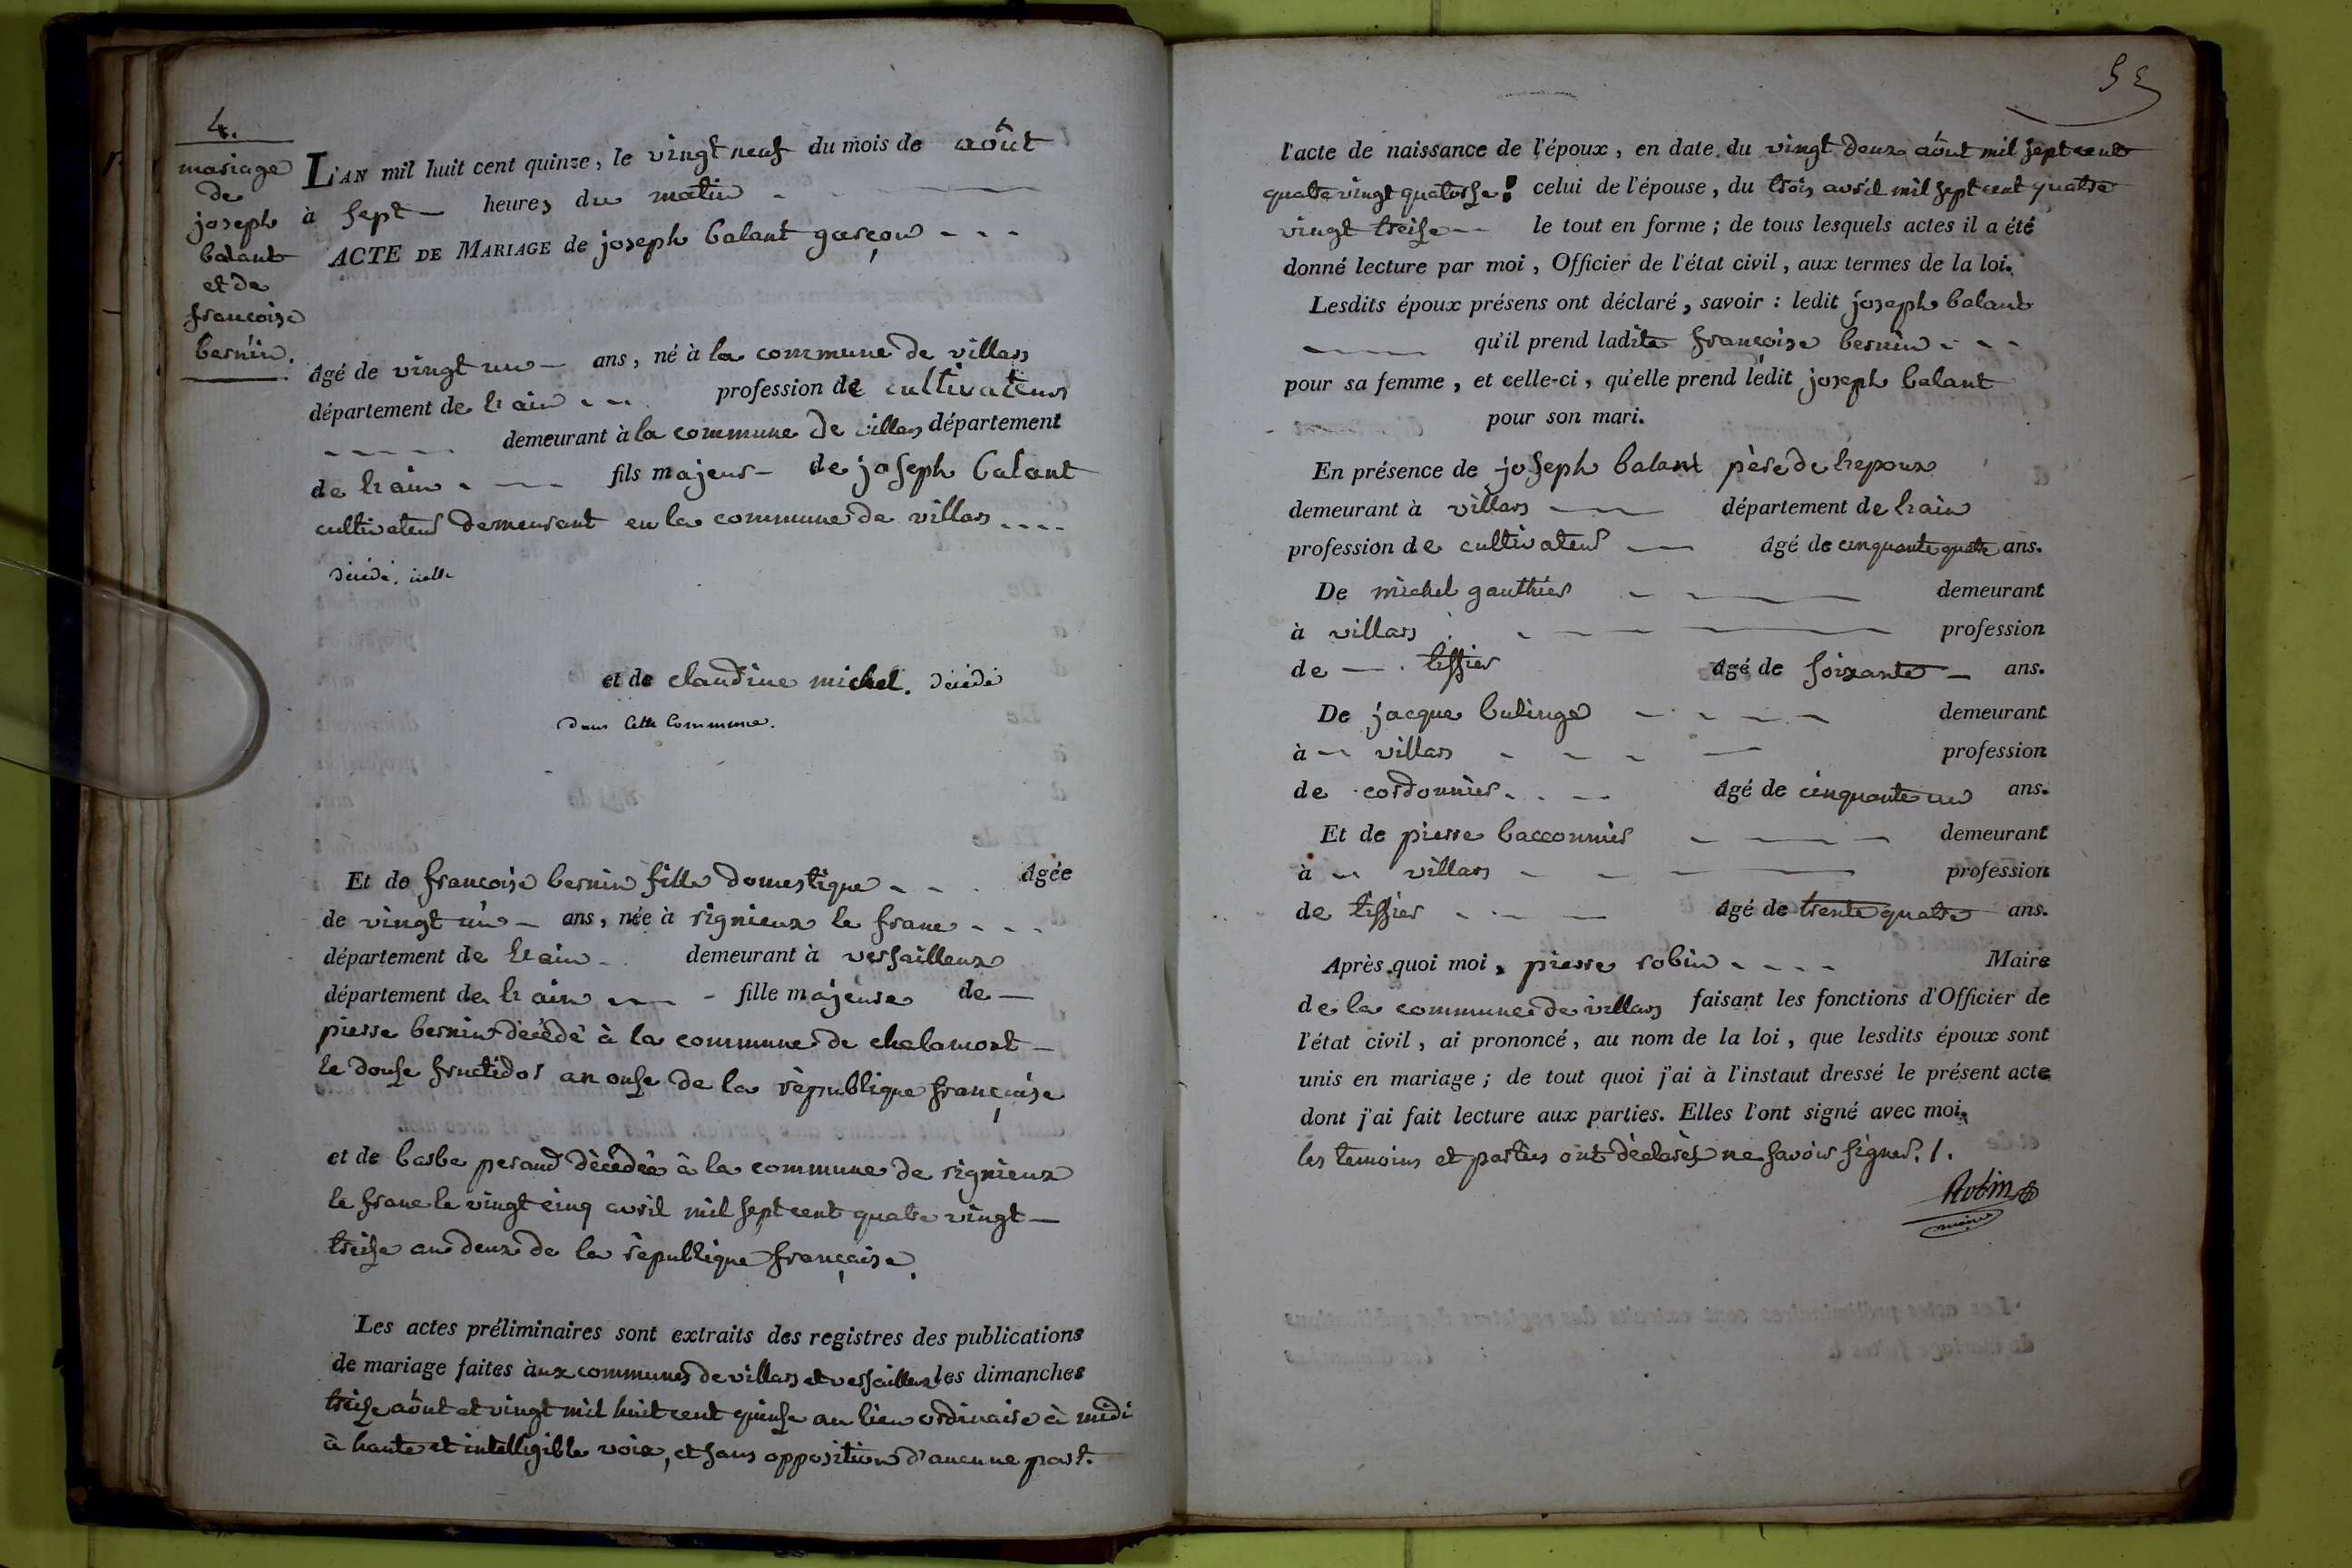 4.
mariage
de
joseph
balant
et de
francoise
bernin.
L'AN mil huit cent quinze, le vingt neuf du mois de août
à sept heures du matin
ACTE DE MARIAGE de joseph balant garçon
âgé de vingt un ans, né à la commune de villars
département de l'ain profession de cultivateur
demeurant à la commune de villars département
de l'ain fils majeur de joseph balant
cultivateur demeurant en la commune de villars
décédé
et de claudine michel. décédé
dans cette commune.
Et de francoise bernin fille domestique âgée
de vingt un ans, née à rignieux le franc
département de l'ain demeurant à versailleux
département de l'ain fille majeure de
pierre bernin décédé à la commune de chalamont
le douse fructidor an onse de la république française
et de barbe peraud décédée à la commune de rignieux
le franc le vingt cinq avril mil sept cent quatre vingt
treise an deux de la république française.
Les actes préliminaires sont extraits des registres des publications
de mariage faites àux communes de villars et versailleux les dimanches
treise août et vingt mil huit cent quinse au lieu ordinaire à midi
à haute et intelligible voix, et sans opposition d'aucune part.
55
l'acte de naissance de l'époux, en date du vingt deux août mil sept cent
quatre vingt quatorse: celui de l'épouse, du trois avril mil sept cent quatre
vingt treise le tout en forme; de tous lesquels actes il a été
donné lecture par moi, Officier de l'état civil, aux termes de la loi.
Lesdits époux présens ont déclaré, savoir: ledit joseph balant
qu'il prend ladite françoise bernin
pour sa femme, et celle-ci, qu'elle prend ledit joseph balant
pour son mari.
En présence de joseph balant père de l'epoux
demeurant à villars département de l'ain
profession de cultivateur âgé de cinquante quatre ans.
De michel gauthier demeurant
à villars profession
de tissier âgé de soixante ans.
De jacque bulinge demeurant
à villars profession
de cordonnier âgé de cinquante un ans.
Et de pierre bacconnier demeurant
à villars profession
de tissier âgé de trente quatre ans.
Après quoi moi, pierre robin Maire
de la commune de villars faisant les fonctions d'Officier de
l'état civil, ai prononcé, au nom de la loi, que lesdits époux sont
unis en mariage; de tout quoi j'ai à l'instaut dressé le présent acte
dont j'ai fait lecture aux parties. Elles l'ont signé avec moi.
les temoins et parties ont déclarés ne savoir signer./.
Robin
maire